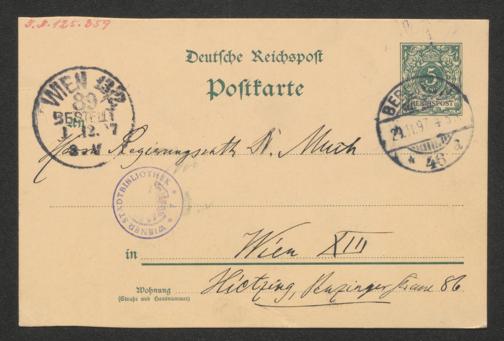 J.N. 125.359
Deutsche Reichspost
Postkarte
5
REICHSPOST
WIEN 13/2
89
BESTELLT
1. 12. 97
BERLIN
29.11.97
* 46 a
Herrn Regierungsrath Dr. Much
* WIENER STADTBIBLIOTHEK *
in Wien XIII
Wohnung
(Straße und Hausnummer)
Hietzing, Penzingerstrasse 86.